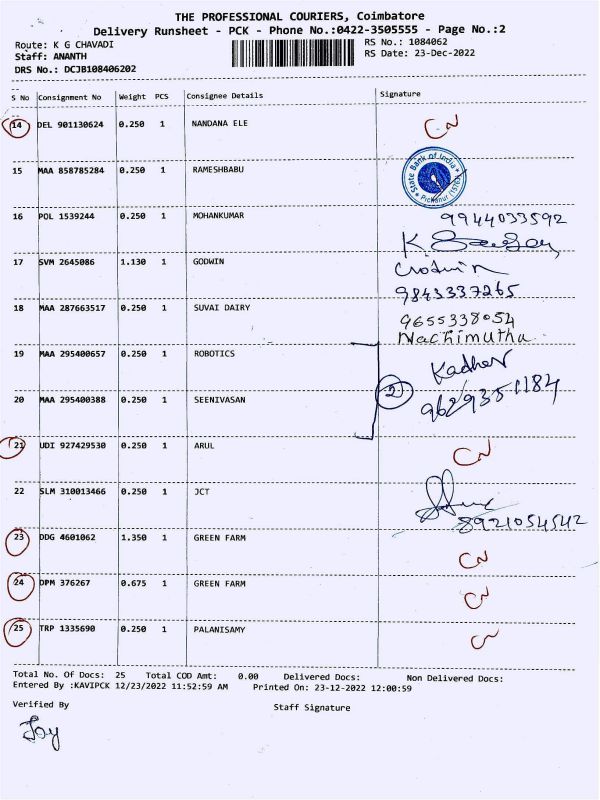 THE PROFESSIONAL COURIERS, Coimbatore
Delivery Runsheet - PCK - Phone No.:0422-3505555 - Page No.:2
Route: K G CHAVADI
RS No.: 1084062
Staff: ANANTH
RS Date: 23-Dec-2022
DRS No.: DCJB108406202
S No Consignment No Weight PCS Consignee Details Signature
14 DEL 901130624 0.250 1 NANDANA ELE CN
15 MAA 858785284 0.250 1 RAMESHBABU State Bank of India
16 POL 1539244 0.250 1 MOHANKUMAR 9944033592
17 SVM 2645086 1.130 1 GODWIN Godwin
9843337265
18 MAA 287663517 0.250 1 SUVAI DAIRY 9655338054
Nachimuthu
19 MAA 295400657 0.250 1 ROBOTICS Kadher
20 MAA 295400388 0.250 1 SEENIVASAN 2 9629351184
21 UDI 927429530 0.250 1 ARUL CN
22 SLM 310013466 0.250 1 JCT
8921054542
23 DDG 4601062 1.350 1 GREEN FARM CN
24 DPM 376267 0.675 1 GREEN FARM CN
25 TRP 1335690 0.250 1 PALANISAMY CN
Total No. Of Docs: 25 Total COD Amt: 0.00 Delivered Docs: Non Delivered Docs:
Entered By :KAVIPCK 12/23/2022 11:52:59 AM Printed On: 23-12-2022 12:00:59
Verified By Staff Signature
Joy